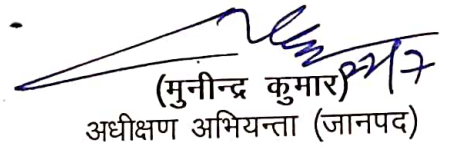 22/7
(मुनीन्द्र कुमार)
अधीक्षण अभियन्ता (जानपद)